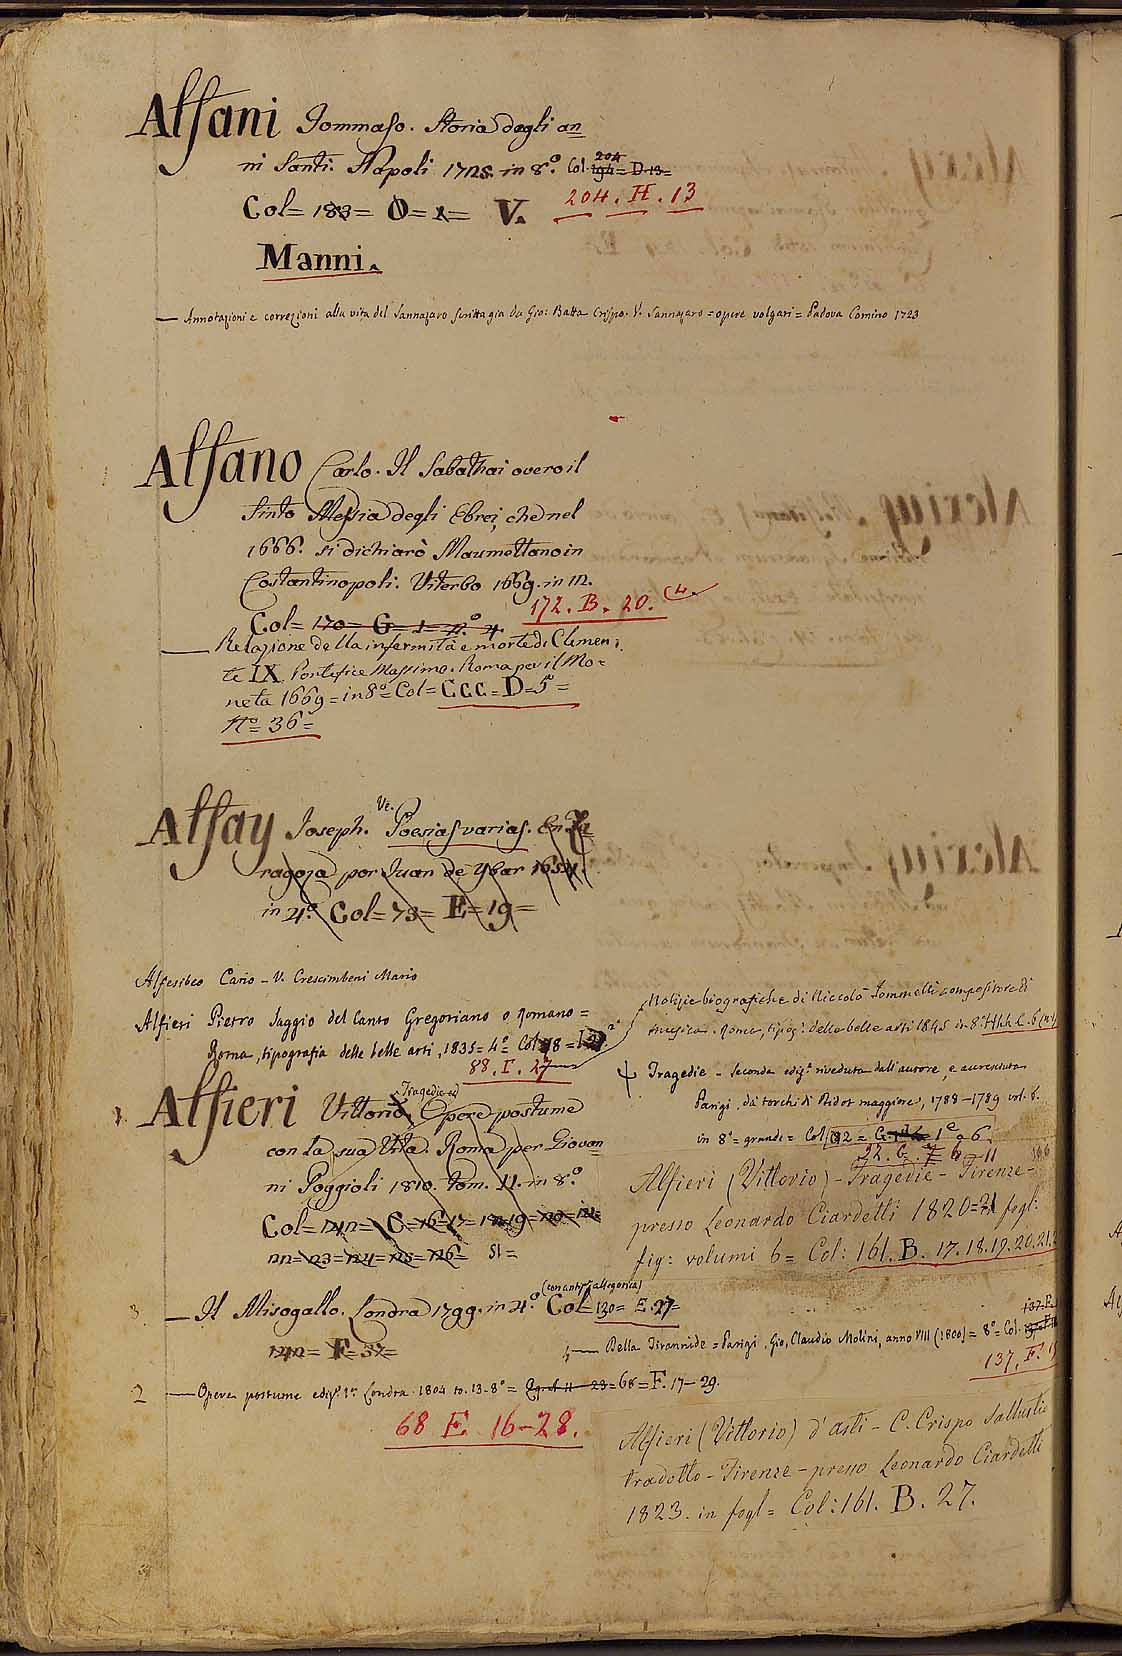 Alfani Tommaso. Storia degli an
ni Santi. Napoli 1725. in 8.° Col. 204
194 = D. 13 =
Col = 183 = O = 1 = V. 204. H. 13
Manni.
— Annotazioni e correzioni alla vita del Sannazaro scritta gia da Gio: Batta Crispo. V. Sannazaro = opere volgari = Padova Comino 1723
Alfano Carlo. Il Sabathai overo il
finto Messia degli Ebrei, che nel
1666. si dichiarò Maumettano in
Costantinopoli. Viterbo 1669. in 12.
172. B. 20. (4.
Col = 170 = G = 1 = n.° 4.
— Relazione della infermità e morte di Clemen
te IX. Pontefice Massimo. Roma per il Mo=
neta 1669 = in 8° = Col = CCC = D = 5° =
N.° = 36 =
Alfay Joseph. Ve. Poesias varias. En Za
ragoza por Juan de Ybar 1654.
in 4.° Col = 73 = E = 19 =
Alfesibeo Cario – V. Crescimbeni Mario
Alfieri Pietro Saggio del Canto Gregoriano o Romano =
Roma, tipografia delle belle arti, 1835 = 4° = Col. 88 =
88. I. 27
1. Alfieri Vittorio. Tragedie ed Opere postume
con la sua Vita. Roma per Giovan
ni Poggioli 1810. Tom. 11. in 8.°
Col = 121 = C = 16 = 17 = 18 = 19 = 20 = 21 =
22 = 23 = 24 = 25 = 26 = 51 =
3. — Il Misogallo. Londra 1799. in 4.° (con antip. allegorica) Col = 130 = E. 27 =
142 = F = 37 =
2 — Opere postume ediz. 1a Londra 1804 to. 13. 8° = 68 = F. 17 – 29.
68 F. 16 – 28.
Notizie biografiche di Niccolò Jommelli compositore di
musica. Roma, tipog. delle belle arti 1845 in 8°
Tragedie – Seconda ediz.e riveduta dall'autore, e accresciuta
Parigi, da' torchi di Didot maggiore, 1788 – 1789 vol. 6.
in 8° = grande = Col.
22. G. 6 – 11
Alfieri (Vittorio) – Tragedie – Firenze –
presso Leonardo Ciardetti 1820 = 21 fogl:
fig: volumi 6 = Col: 161. B. 17. 18. 19. 20. 21.
4 — Della Tirannide = Parigi, Gio. Claudio Molini, anno VIII (1800) = 8° = Col.
137. F.
Alfieri (Vittorio) d'Asti – C. Crispo Sallustio
tradotto – Firenze – presso Leonardo Ciardetti
1823. in fogl = Col: 161. B. 27.